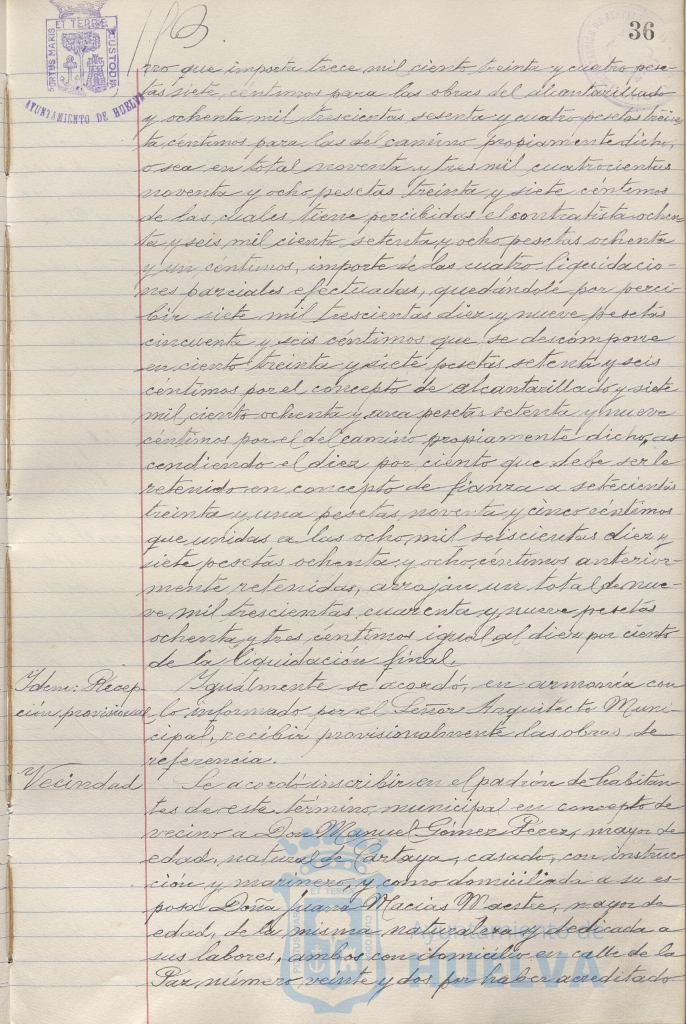 36
PORTUS MARIS ET TERRE CUSTODIA
AYUNTAMIENTO DE HUELVA
rro que importa trece mil ciento treinta y cuatro pese-
tas siete céntimos para las obras del alcantarillado
y ochenta mil trescientas sesenta y cuatro pesetas trein-
ta céntimos para las del camino propiamente dicho,
o sea en total noventa y tres mil cuatrocientas
noventa y ocho pesetas treinta y siete céntimos
de las cuales tiene percibidas el contratista ochen-
ta y seis mil ciento setenta y ocho pesetas ochenta
y un céntimos, importe de las cuatro liquidacio-
nes parciales efectuadas, quedándole por perci-
bir siete mil trescientas diez y nueve pesetas
cincuenta y seis céntimos que se descompone
en ciento treinta y siete pesetas setenta y seis
céntimos por el concepto de alcantarillado y siete
mil ciento ochenta y una pesetas setenta y nueve
céntimos por el del camino propiamente dicho, as
cendiendo el diez por ciento que debe serle
retenido en concepto de fianza a setecientas
treinta y una pesetas noventa y cinco céntimos
que unidas a las ocho mil seiscientas diez y
siete pesetas ochenta y ocho céntimos anterior-
mente retenidas, arrojan un total de nue-
ve mil trescientas cuarenta y nueve pesetas
ochenta y tres centimos igual al diez por ciento
de la liquidación final.
Idem: Recep-
ción provisional
Igualmente se acordó, en armonía con
lo informado por el Señor Arquitecto Muni-
cipal, recibir provisionalmente las obras de
referencia.
Vecindad
Se acordó inscribir en el padrón de habitan-
tes de este término municipal en concepto de
vecino a Don Manuel Gómez Perez, mayor de
edad, natural de Cartaya, casado, con instruc-
ción y marinero, y como domiciliada a su es-
posa Doña Juana Macias Maestre, mayor de
edad, de la misma naturaleza y dedicada a
sus labores, ambos con domicilio en calle de la
Paz número veinte y dos por haber acreditado
Ayuntamiento de
HUELVA